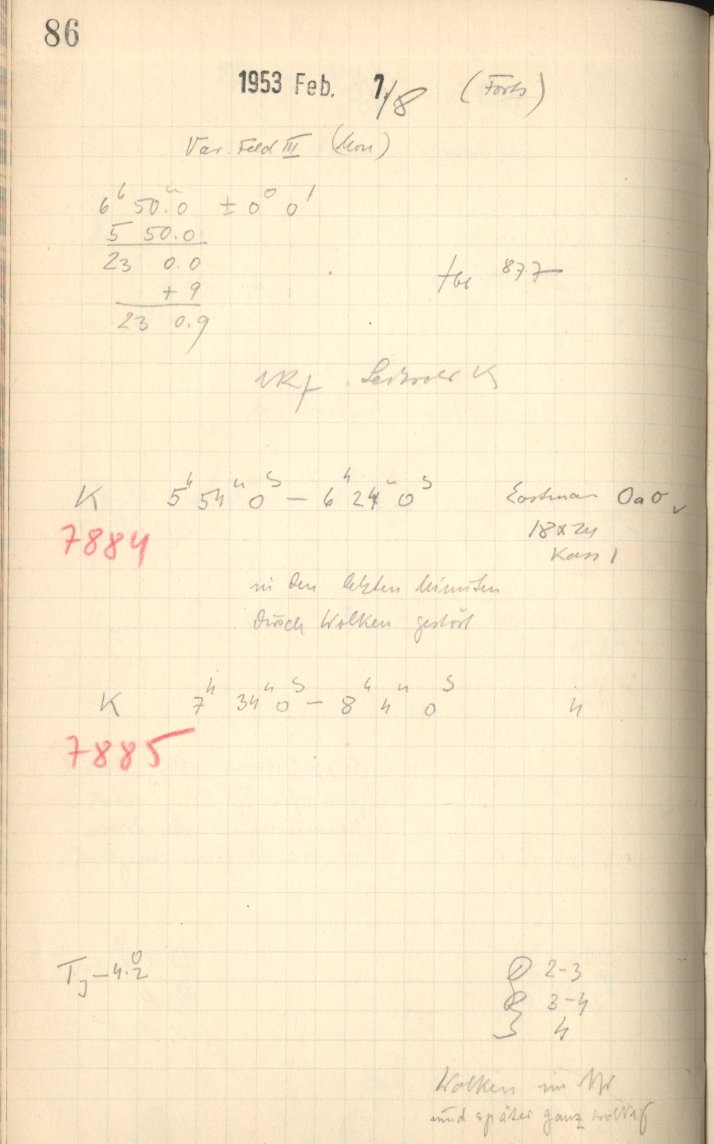 86
1953 Feb. 7/8 (Forts)
Var. Feld III (Mon)
6ʰ 50.ᵐ0 ± 0° 0'
5 50.0
23 0.0
+ 9
23 0.9
877
K 5ʰ 54ᵐ 0ˢ — 6ʰ 24ᵐ 0ˢ Eastman OaO
7884
18x24
Kass 1
in den letzten Minuten
durch Wolken gestört
K 7ʰ 34ᵐ 0ˢ — 8ʰ 4ᵐ 0ˢ
7885
T_J -4.°2
2-3
3-4
S 4
Wolken im
und später ganz wolkig